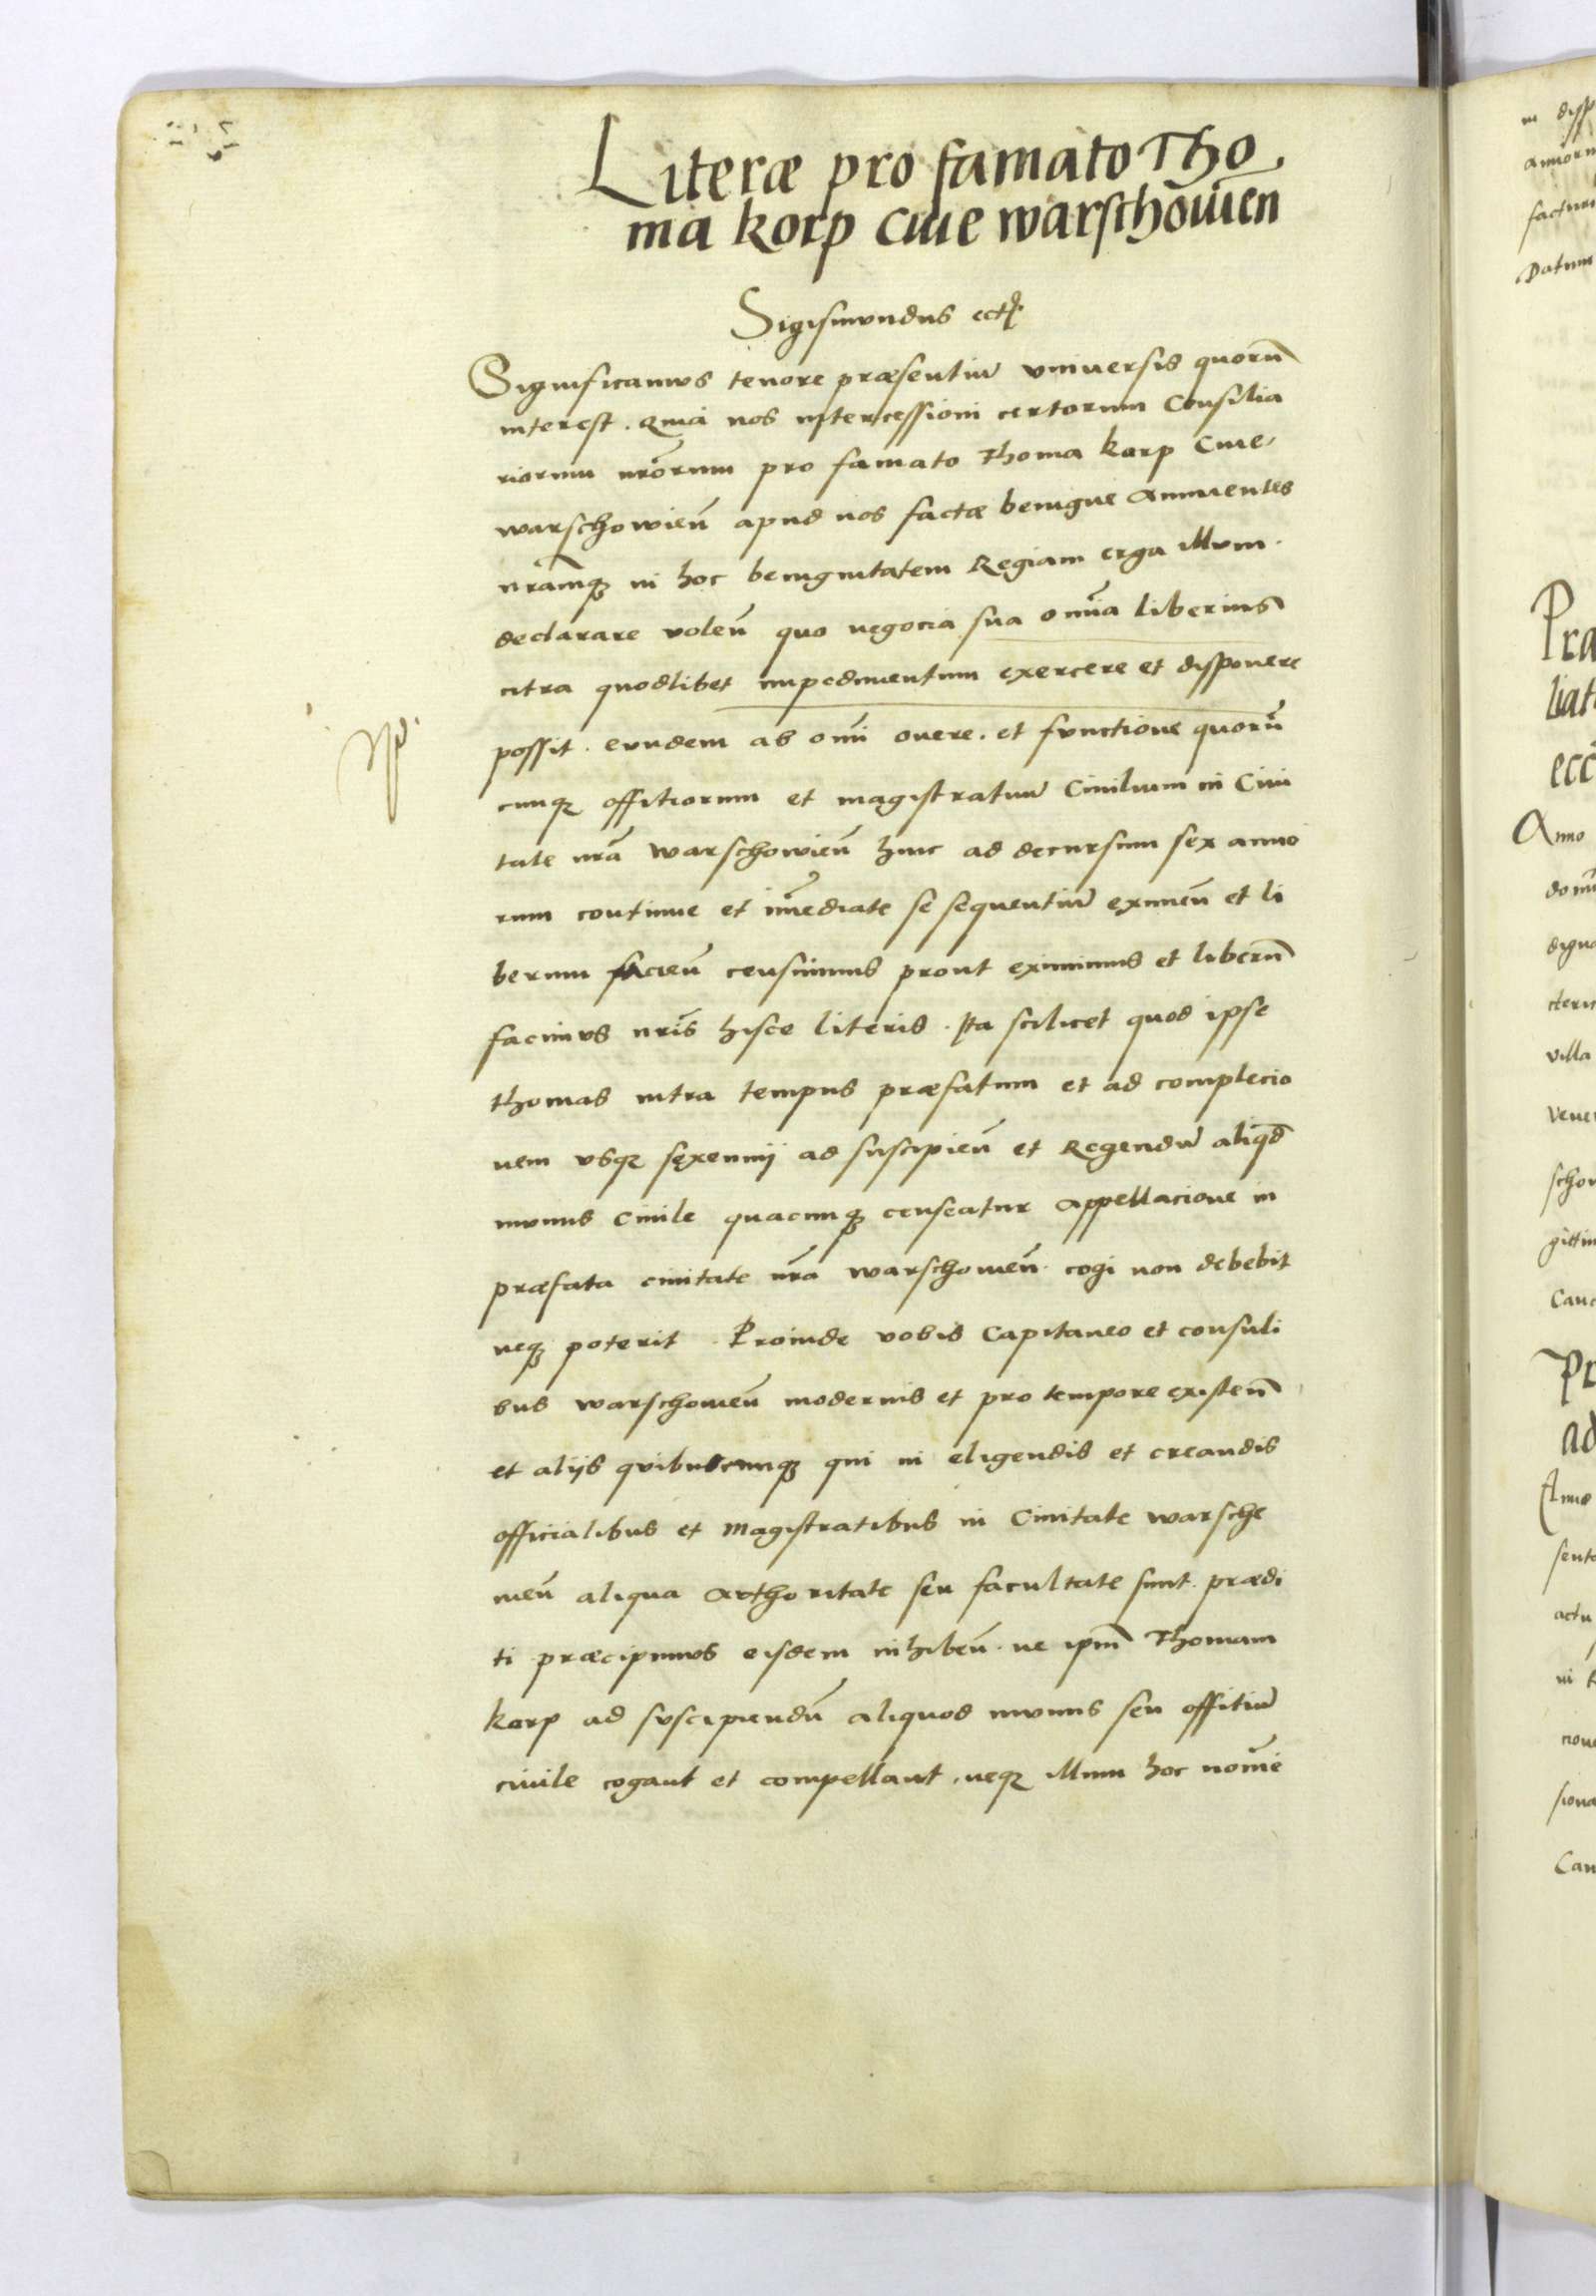 Literæ pro famato Tho
ma korp ciue warschouień
Sigismundus ect
Significamus tenore præsentiū vniuersis quorū
interest. Quia nos intercessioni certorum Consilia
riorum nrorum pro famato Thoma korp Ciue
warschowień apud nos factæ benigne Annuentes
nramq in hoc benignitatem Regiam erga illum.
declarare voleń quo negocia sua omia liberius
citra quodlibet impedimentum exercere et disponere
possit. eundem ab omi onere. et functione quorū
cunq offitiorum et magistratuū Ciuilium in Ciui
tate nra warschowień hinc ad decursum sex anno
rum continue et imediate se sequentiū eximeń et li
berum facień censuimus prout eximimus et liberū
facimus nris hisce literis. Ita scilicet quod ipse
thomas intra tempus præfatum et ad complecio
nem vsq sexennij ad suscipień et Regendū aliqd
munus Ciuile quacunq censeatur Appellacione in
præfata ciuitate nra warschouień. cogi non debebit
neq poterit. Proinde vobis Capitaneo et consuli
bus warschouień modernis et pro tempore existeń
et alijs quibuscunq qui in eligendis et creandis
officialibus et Magistratibus in Ciuitate warscho
uień aliqua Authoritate seu facultate sunt. prædi
ti præcipimus eisdem inhibeń. ne ipm Thomam
korp ad suscipiendū aliquod munus seu offitiū
ciuile cogant et compellant. neq illum hoc nomie
Pra
liat
ecc
Anno
villa
Pr
ad
Datum